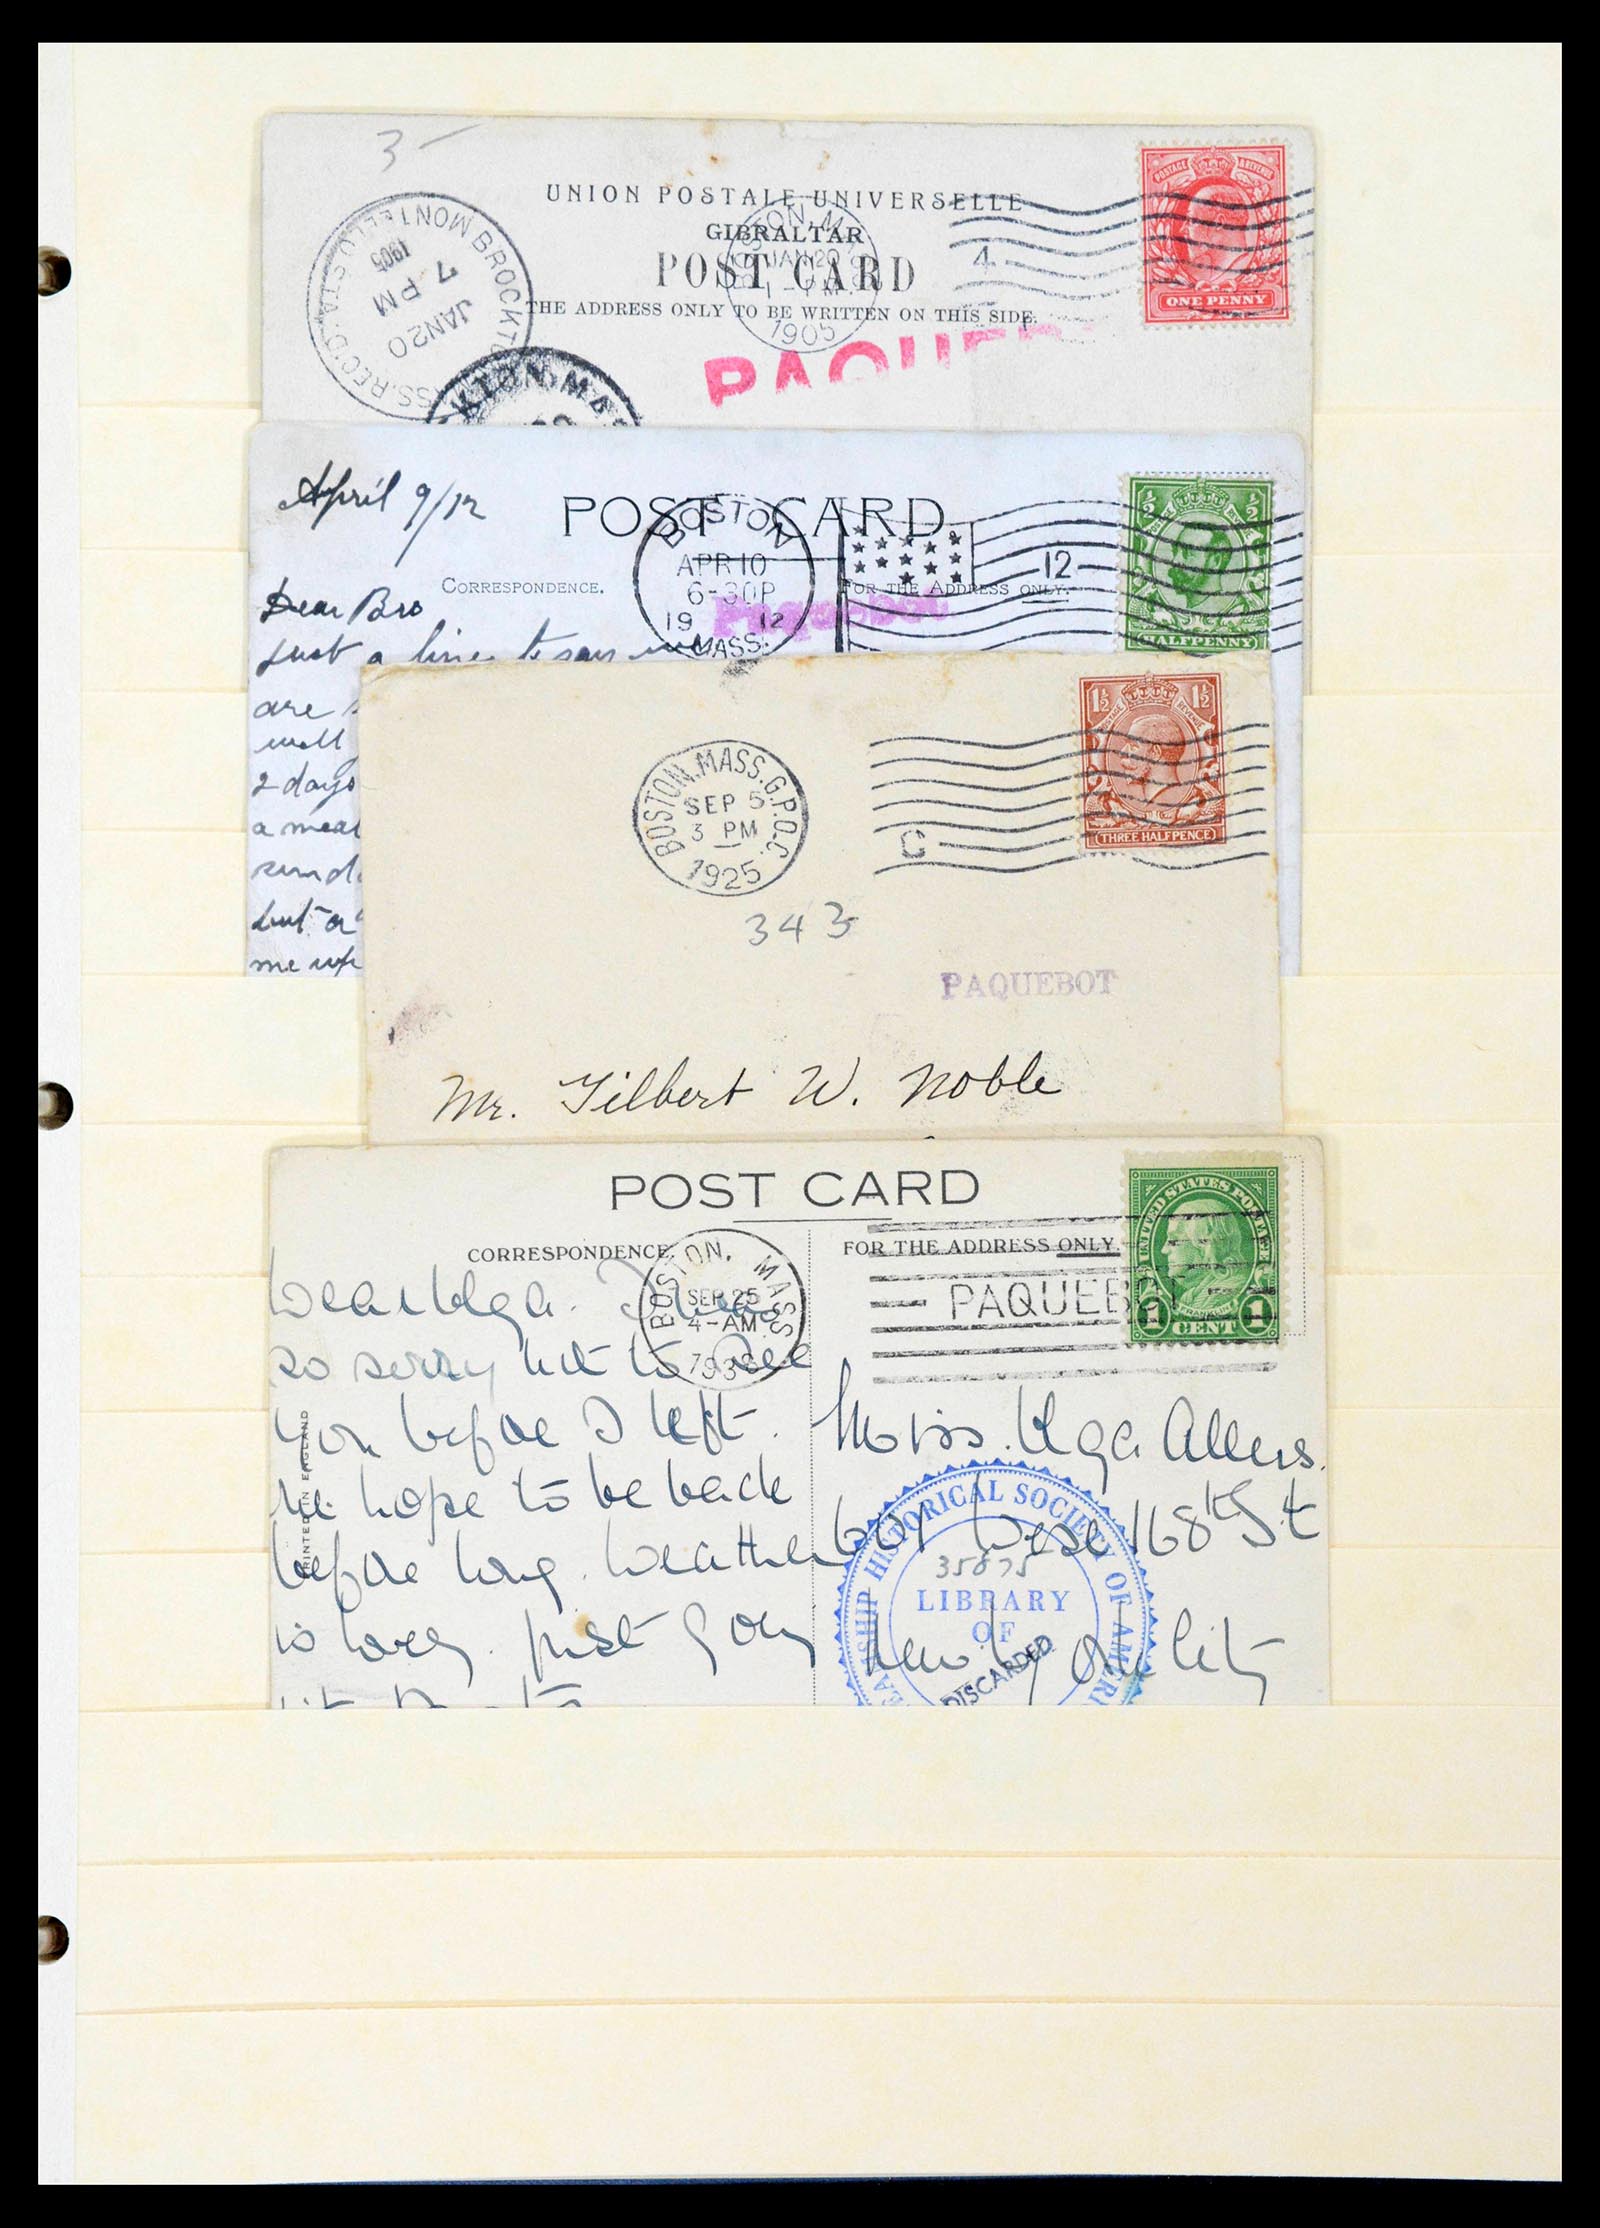 3-
UNION POSTALE UNIVERSELLE
GIBRALTAR
POST CARD
THE ADDRESS ONLY TO BE WRITTEN ON THIS SIDE.
BOSTON, MASS.
JAN 20
1 - PM
1905
4
POSTAGE REVENUE
ONE PENNY
MASS. REC'D. BROCKTON MONTELLO STA.
JAN 20
7 PM
1905
PAQUEB
KTON, MAS
April 9/12
POST CARD
CORRESPONDENCE.
FOR THE ADDRESS ONLY.
BOSTON
APR 10
6-30P
19 12
MASS.
12
Paquebot
½ ½
HALFPENNY
Dear Bro
just a line to say
are
well
2 days
a mea
sund
but a
me up
BOSTON, MASS. G.P.O.C.
SEP 5
3 PM
1925
C
1½ 1½
POSTAGE REVENUE
THREE HALFPENCE
343
PAQUEBOT
Mr. Gilbert W. Noble
POST CARD
CORRESPONDENCE.
FOR THE ADDRESS ONLY.
BOSTON, MASS
SEP 25
4-AM
PAQUEBOT
UNITED STATES POSTAGE
FRANKLIN
1 CENT 1
PRINTED IN ENGLAND
Dear Olga. I was
so sorry not to see
you before I left.
We hope to be back
before long. Weather
is lovely. just
Miss. Olga Allers.
601 West 168th St
New York City
STEAMSHIP HISTORICAL SOCIETY OF AMERI
35875
LIBRARY
OF
DISCARDED